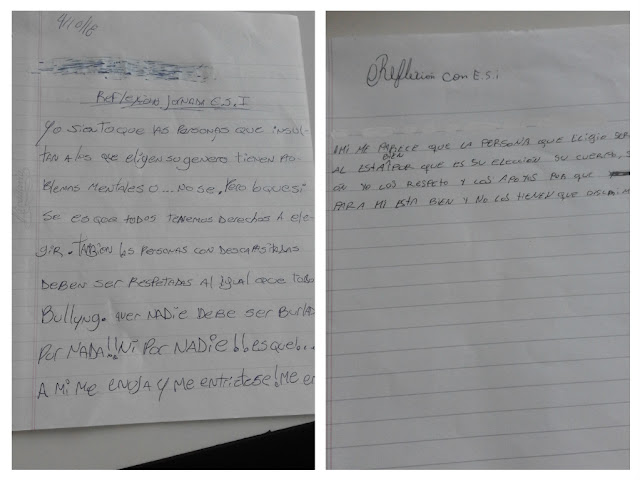 9/10/18
REFLEXIÓN JORNADA E.S.I
Yo siento que las personas que insul-
tan a los que eligen su genero tienen pro
blemas mentales o... no se, pero lo que si
se es que todes tenemos derechos a ele-
gir. también las personas con descapasitadas
deben ser respetadas al igual que todos
Bullyng. ayer NADie debe ser BurlAd
por NADA!! Ni por NADie!! es que...
A mi me enoja y me entristese! Me en
Reflexión con E.S.i
AMi me parece que la persona que eligio ser
al está bien por que es su elección su cuerpo,
yo los respeto y los apoyo por que
para mi esta bien y no los tienen que discrimi